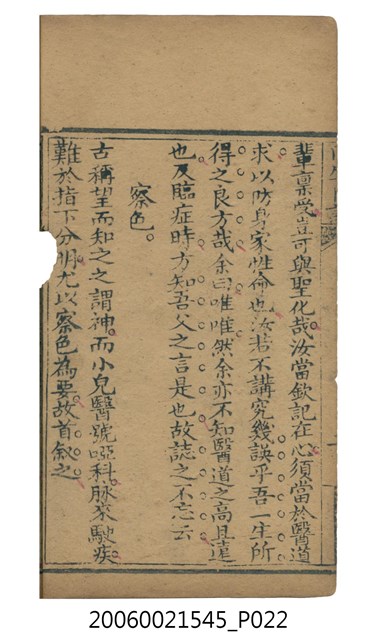 輩禀受豈可與聖化哉汝當欽記在心須當於醫道
求以防身家性命也汝若不講究幾誤乎吾一生所
得之良方哉余曰唯唯然余亦不知醫道之高且遠
也及臨症時方知吾父之言是也故誌之不忘云
察色。
古稱望而知之之謂神而小兒醫號啞科脉來駛疾
難於指下分明尤以察色為要故首叙之
20060021545_P022